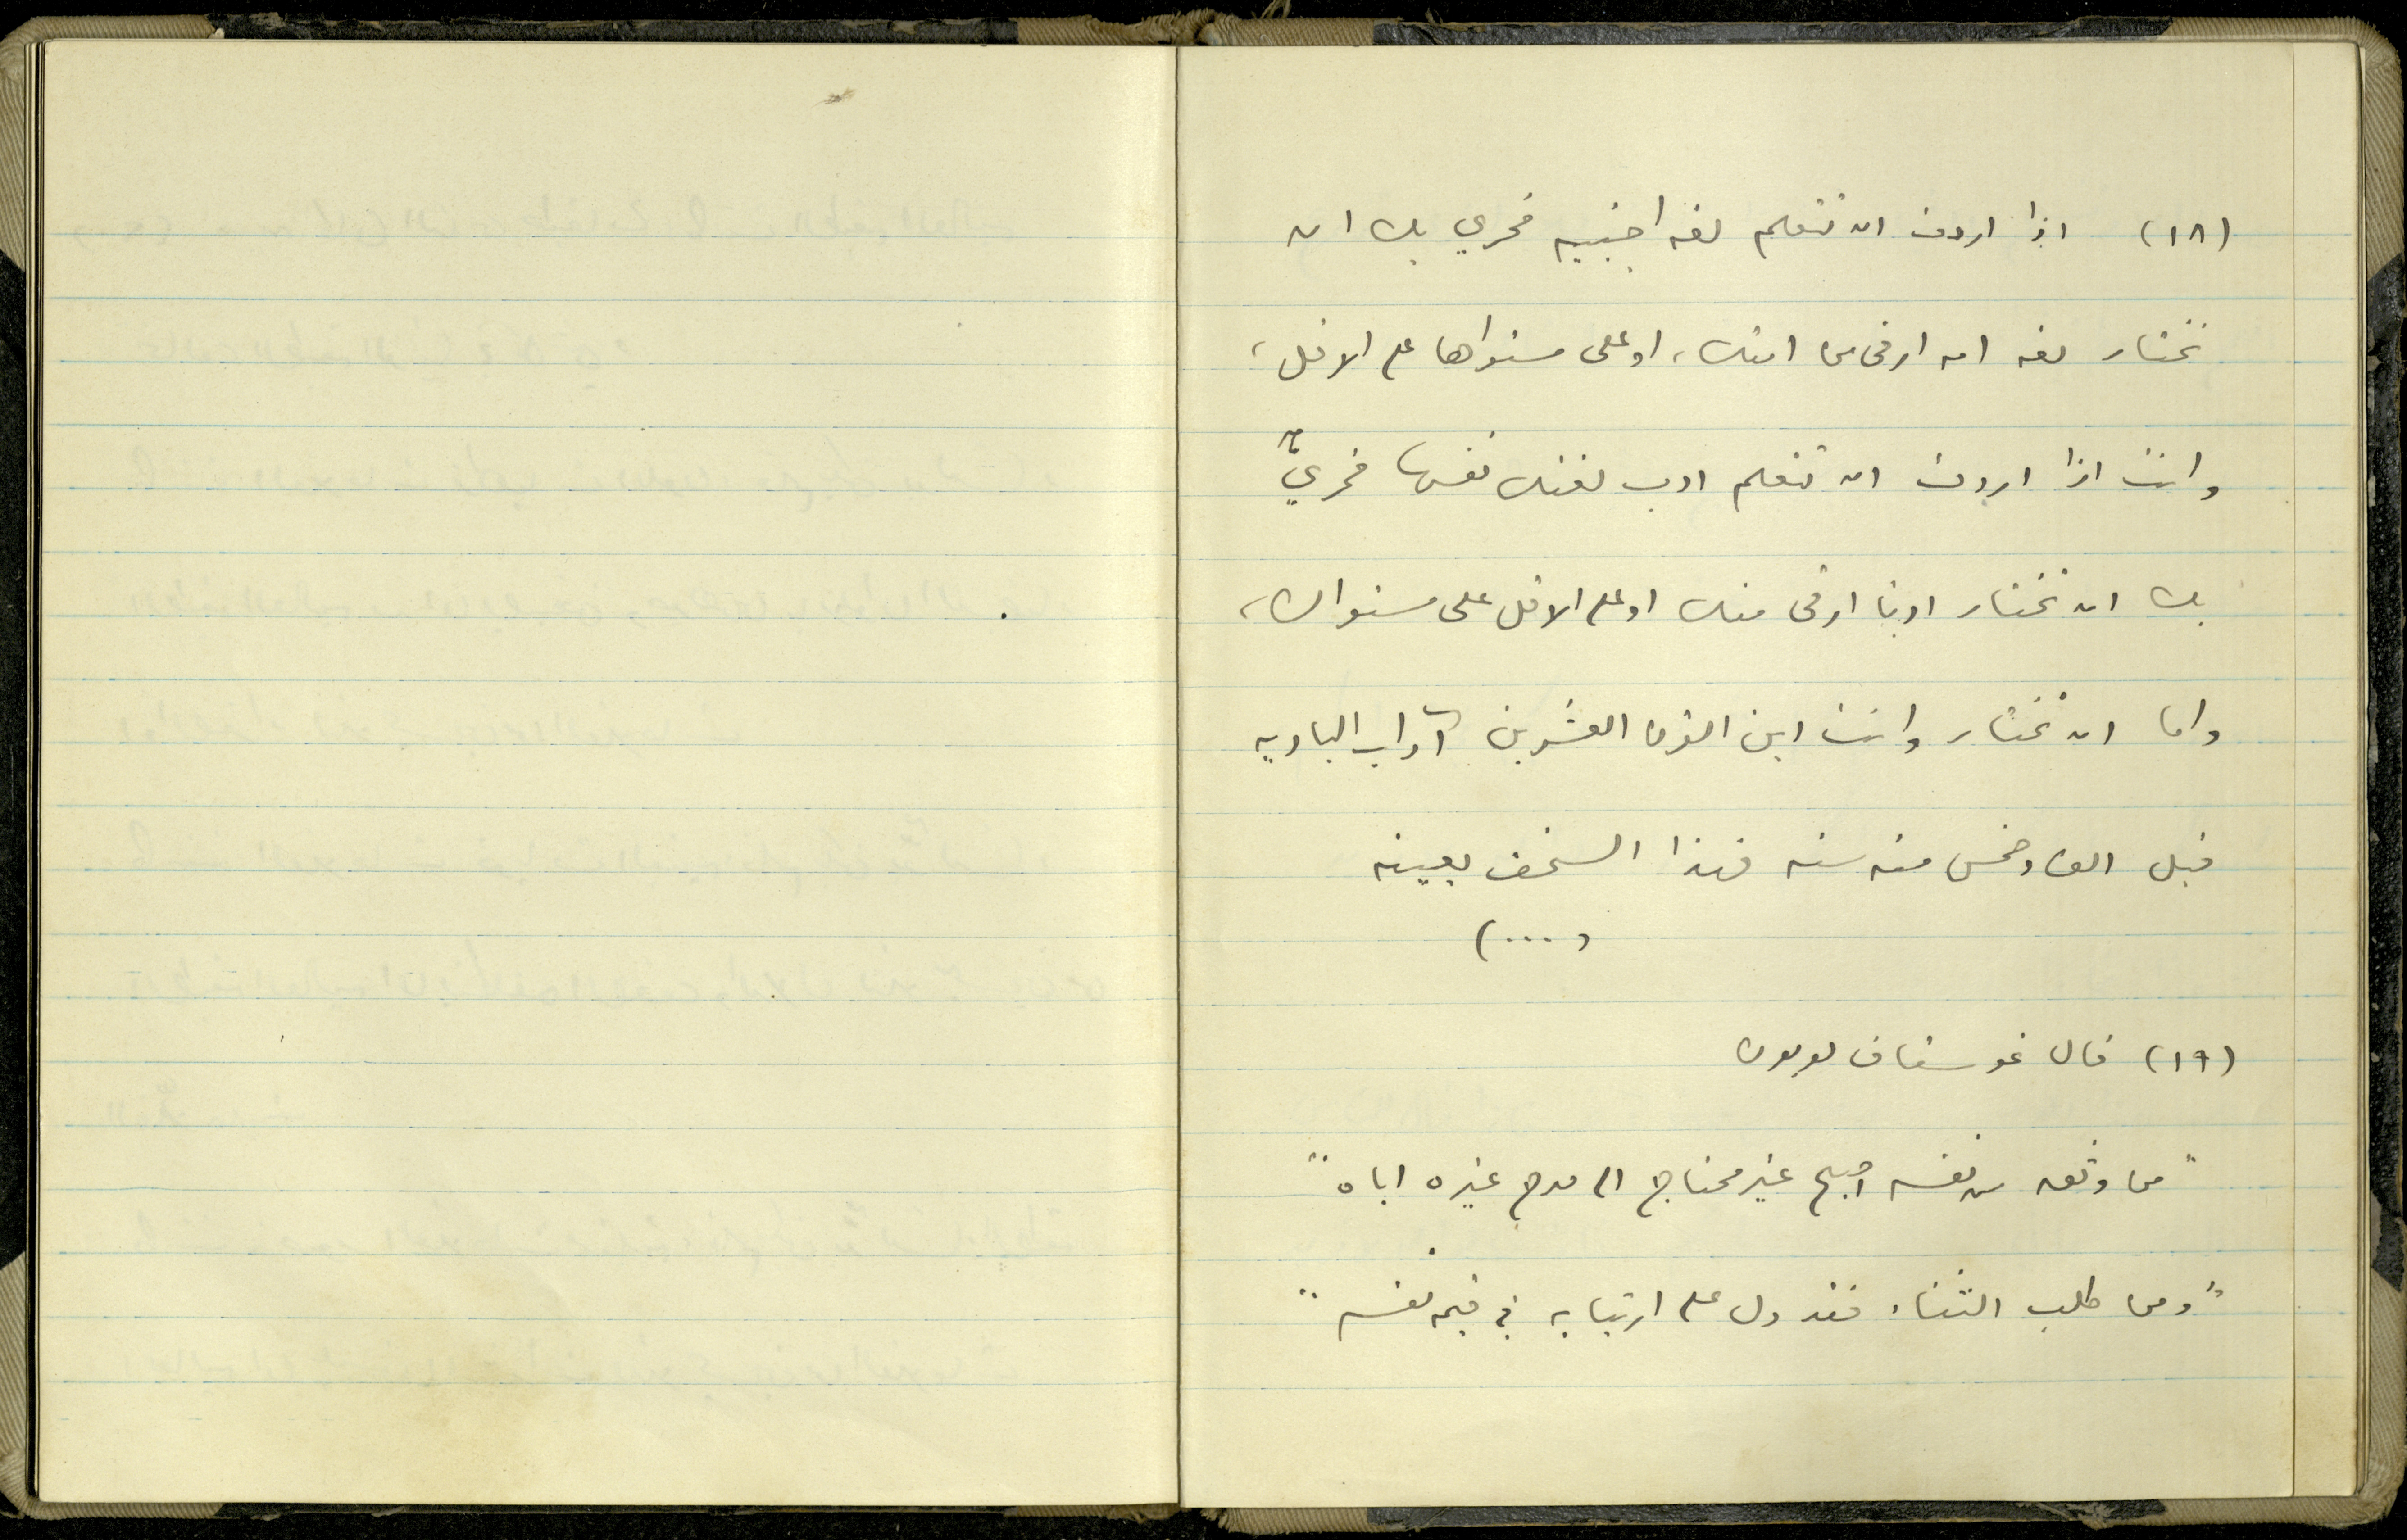 (١٨) اذا اردت ان تتعلم لغه اجنبيه فحري بك ان
تختار لغه امه ارقى من امتك، او على مستواها على الاقل،
وانت اذا اردت ان تتعلم ادب لغتك نفسها فحريٌّ
بك ان تختار ادبا ارقى منك او على الاقل على مستواك،
واما ان تختار وانت ابن القرن العشرين آداب الباديه
قبل الف وخمس مئه سنه فهذا السخف بعينه
(....)
(١٩) قال غوستاف لوبون
"من وثق من نفسه اصبح غير محتاج الى مدح غيره اياه"
"ومن طلب الثناء فقد دل على ارتيابه في قيمه نفسه"